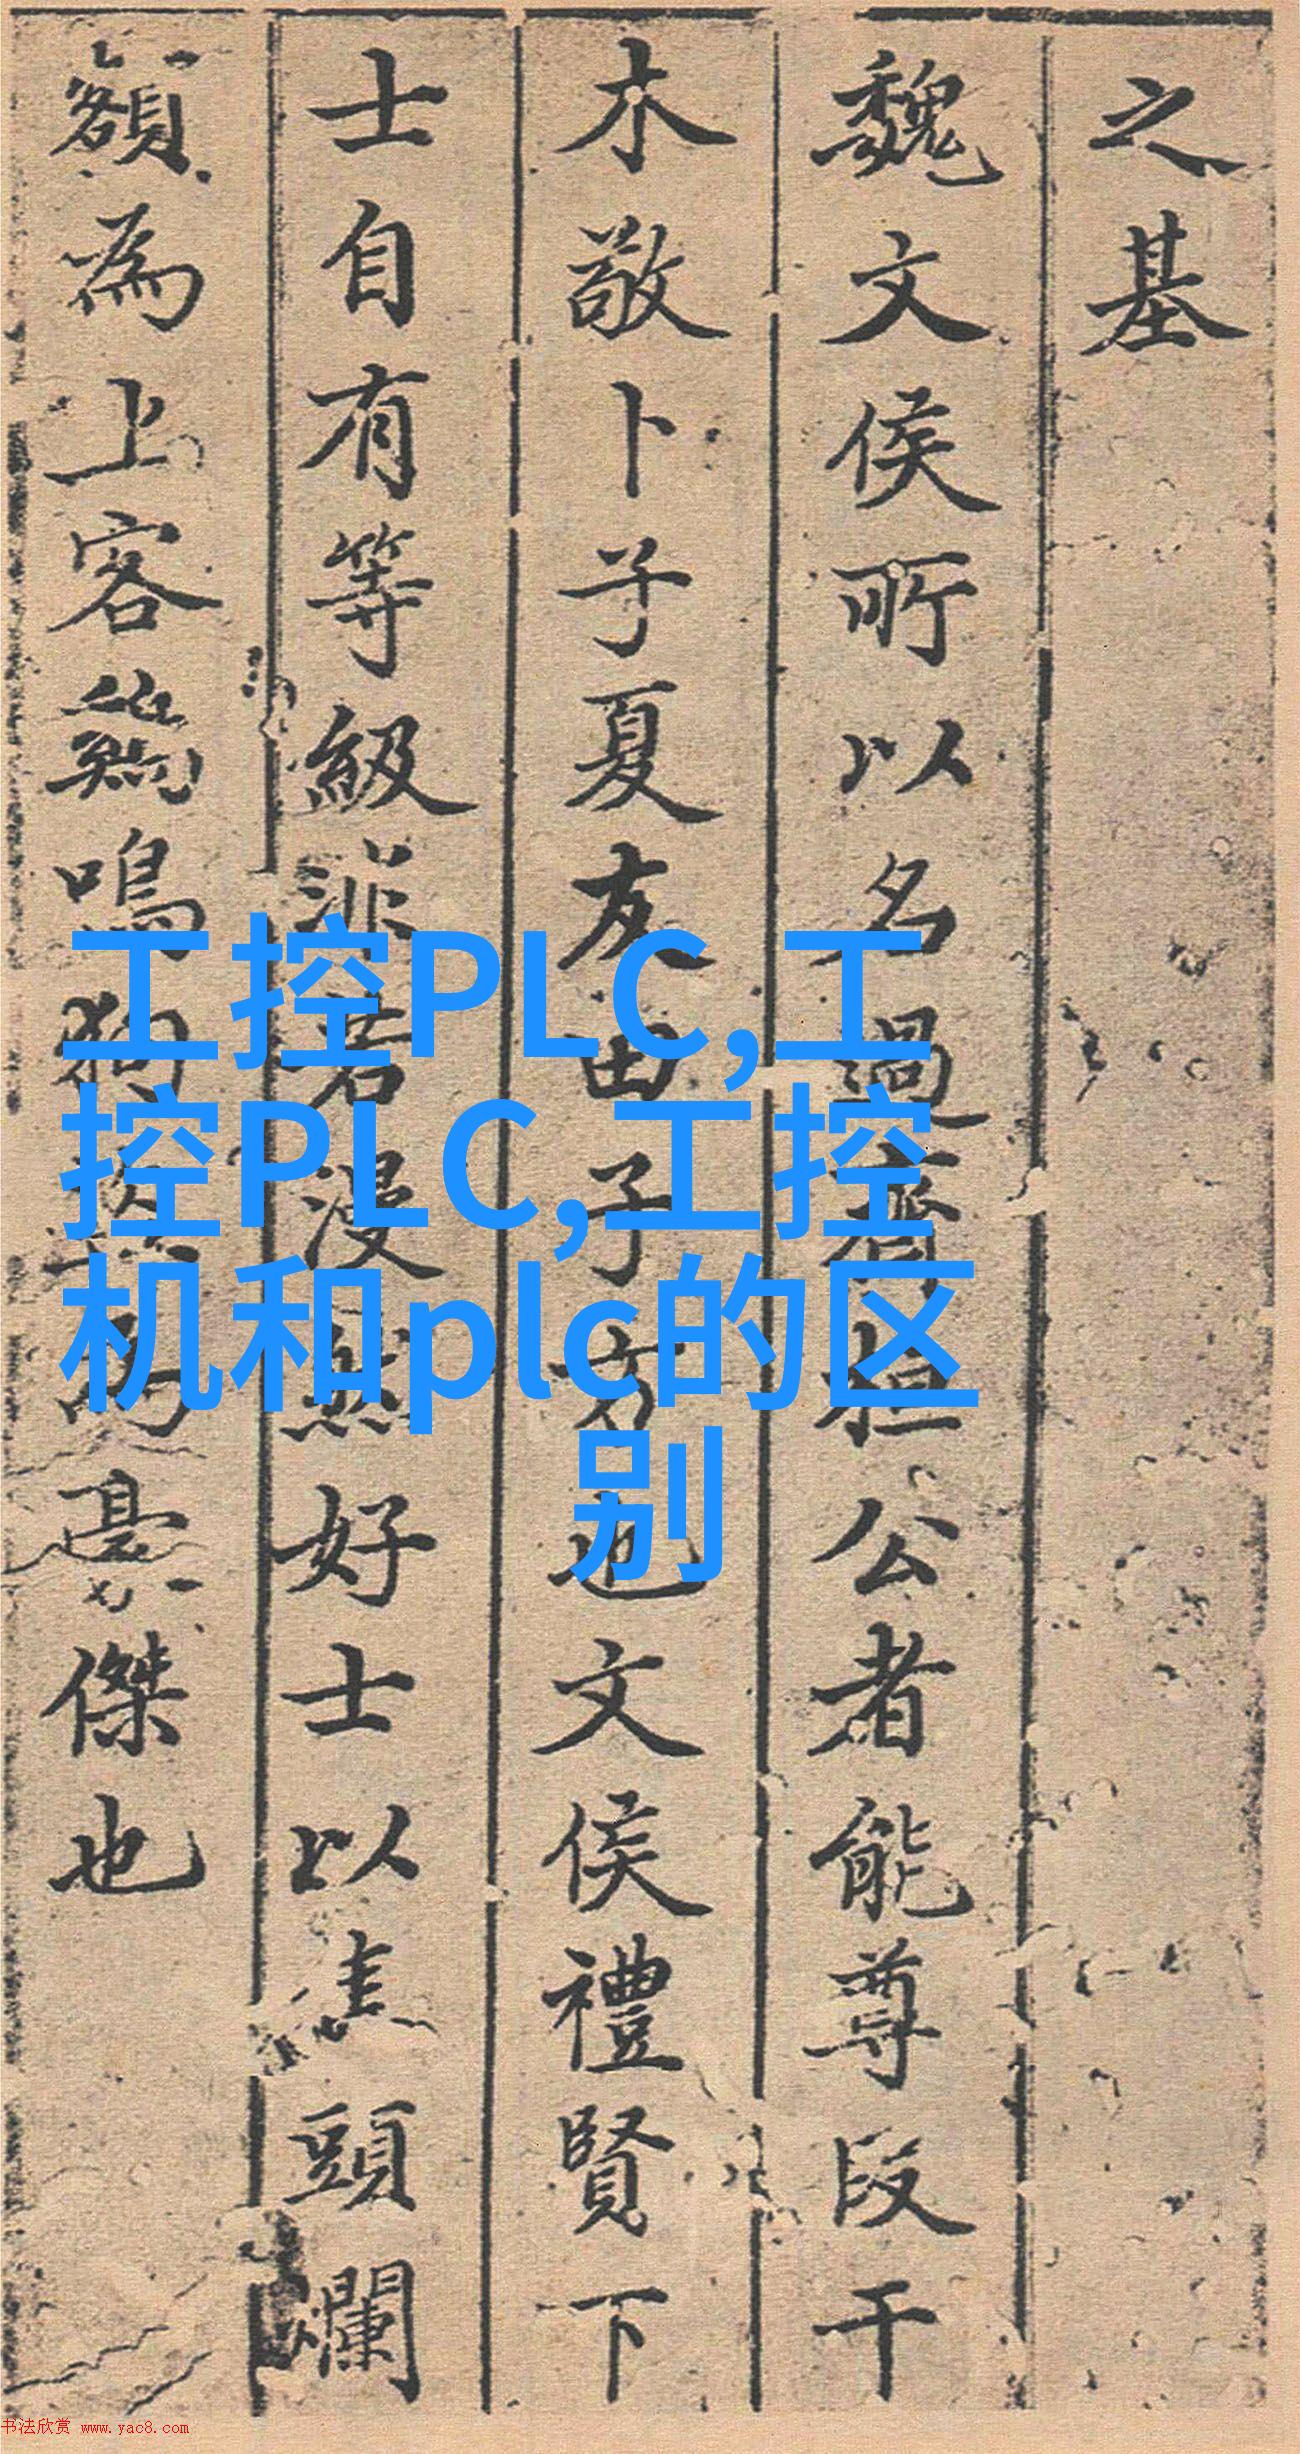 之基
魏文侯所以名過齊桓公者能尊段干
木敬卜子夏友田子方也文侯禮賢下
士自有等級非若漫然好士以焦頭爛
額為上客鷄鳴狗為豪傑也
工控PLC,工
控PLC,工控
机和plc的区
别
书法欣赏 www.yac8.com